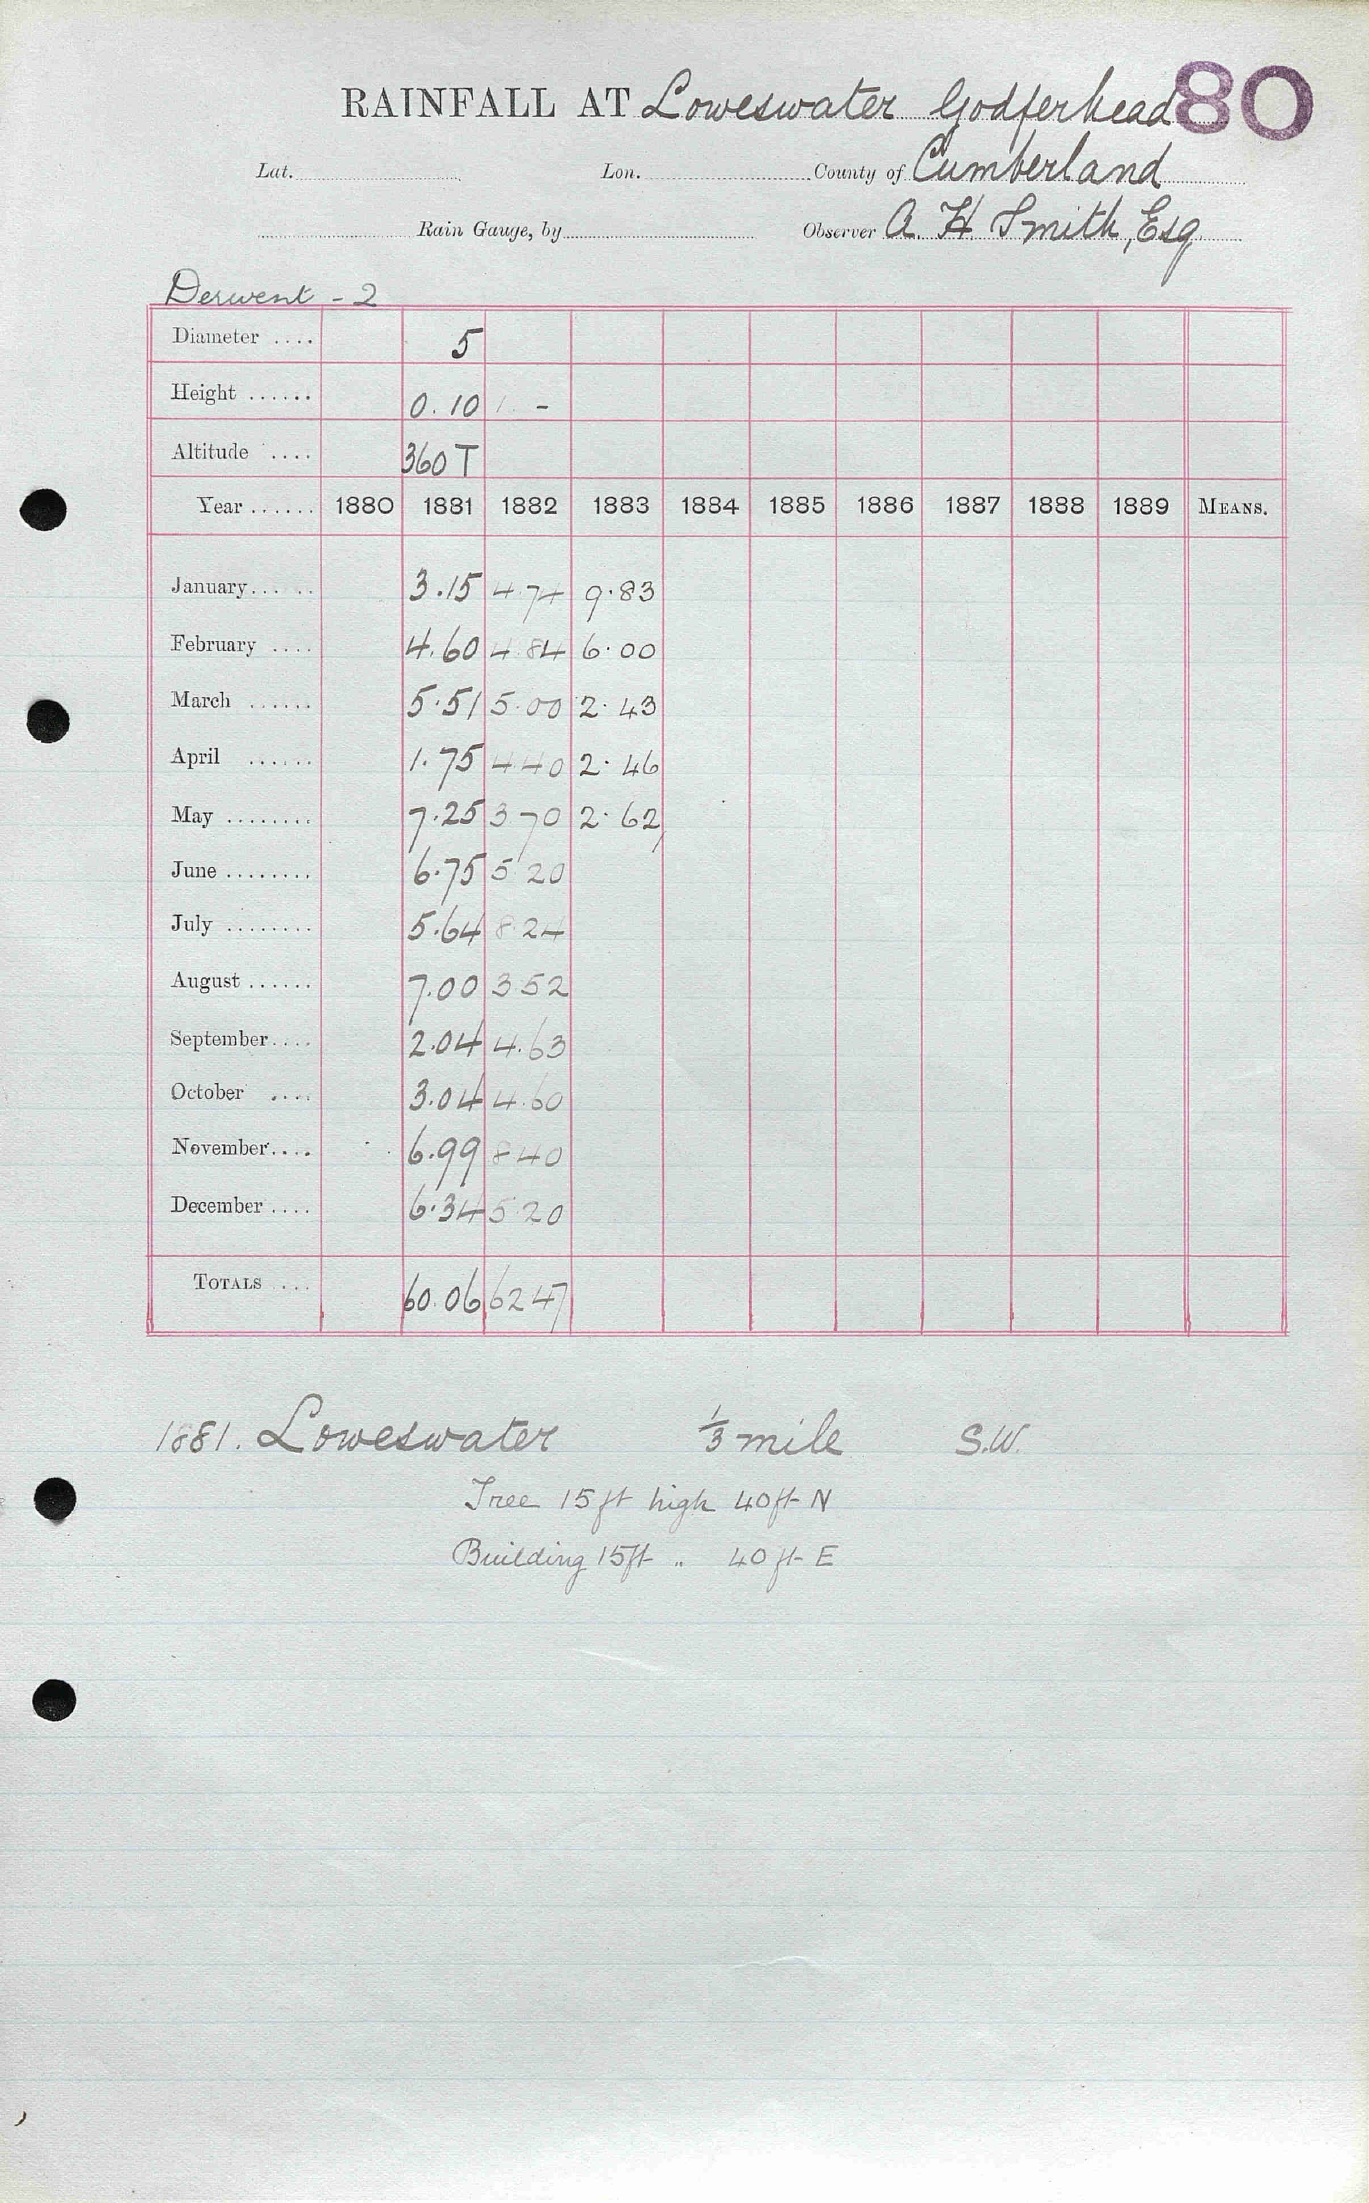 RAINFALL AT Loweswater Godferhead 80
Lat. Lon. County of Cumberland
Rain Gauge, by Observer A. H. Smith, Esq
Derwent - 2
Diameter .... 5
Height ...... 0.10 1. -
Altitude .... 360 T
Year ...... 1880 1881 1882 1883 1884 1885 1886 1887 1888 1889 MEANS.
January...... 3.15 4.74 9.83
February .... 4.60 4.84 6.00
March ...... 5.51 5.00 2.43
April ...... 1.75 4 40 2.46
May ........ 7.25 3 70 2.62
June ........ 6.75 5 20
July ........ 5.64 8.24
August ...... 7.00 3 52
September.... 2.04 4.63
October .... 3.04 4.60
November.... 6.99 8 40
December .... 6.34 5 20
TOTALS .... 60.06 62 47
1881. Loweswater 1/3 mile S.W.
Tree 15 ft high 40 ft N
Building 15ft „ 40 ft E